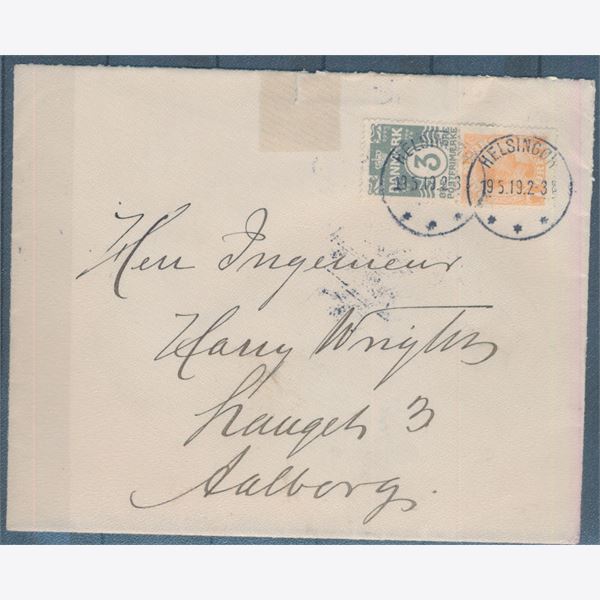 DANMARK
3
ØRE
POSTFRIMÆRKE
HELSINGØR
19.5.19.2-3
HELSINGØR
19.5.19.2-3
Herr Ingenieur
Harry
3
Aalborg.